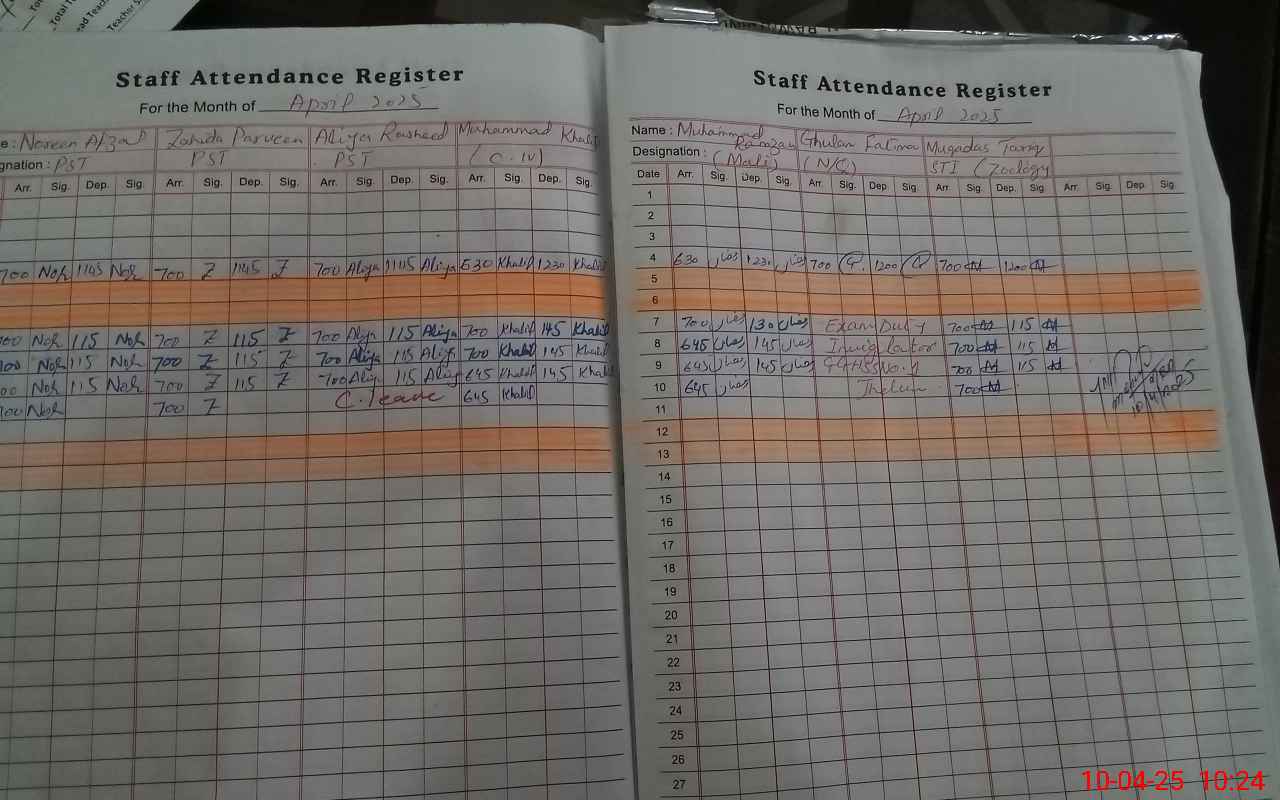 Total T
ead Teach
Teacher S
Staff Attendance Register
For the Month of April 2025
e : Noreen Afzal Zahida Parveen Aliya Rasheed Muhammad Khalid
gnation : PST PST PST (C.IV)
Arr. Sig. Dep. Sig. Arr. Sig. Dep. Sig. Arr. Sig. Dep. Sig. Arr. Sig. Dep. Sig.
700 Nor 1145 Nor 700 Z 1145 Z 700 Aliya 1145 Aliya 630 Khalid 1230 Khalid
00 Nor 115 Nor 700 Z 115 Z 700 Aliya 115 Aliya 700 Khalid 145 Khalid
00 Nor 115 Nor 700 Z 115 Z 700 Aliya 115 Aliya 700 Khalid 145 Khalid
00 Nor 115 Nor 700 Z 115 Z 700 Aliya 115 Aliya 645 Khalid 145 Khalid
700 Nor 700 Z C. leave 645 Khalid
Staff Attendance Register
For the Month of April 2025
Name : Muhammad Ramzan Ghulam Fatima Muqadas Tariq
Designation : (Mali) (N/Q) STI (Zoology
Date Arr. Sig. Dep. Sig. Arr. Sig. Dep. Sig. Arr. Sig. Dep. Sig. Arr. Sig. Dep. Sig.
1
2
3
4 630 رمضان 1230 رمضان 700 1200 700 1200
5
6
7 700 رمضان 130 رمضان Exam Duty 700 115
8 645 رمضان 145 رمضان Invigilator 700 115
9 645 رمضان 145 رمضان GGHSS No.1 700 115
10 645 رمضان Jhelum 700
10/4/2025
11
12
13
14
15
16
17
18
19
20
21
22
23
24
25
26
27
10-04-25 10:24